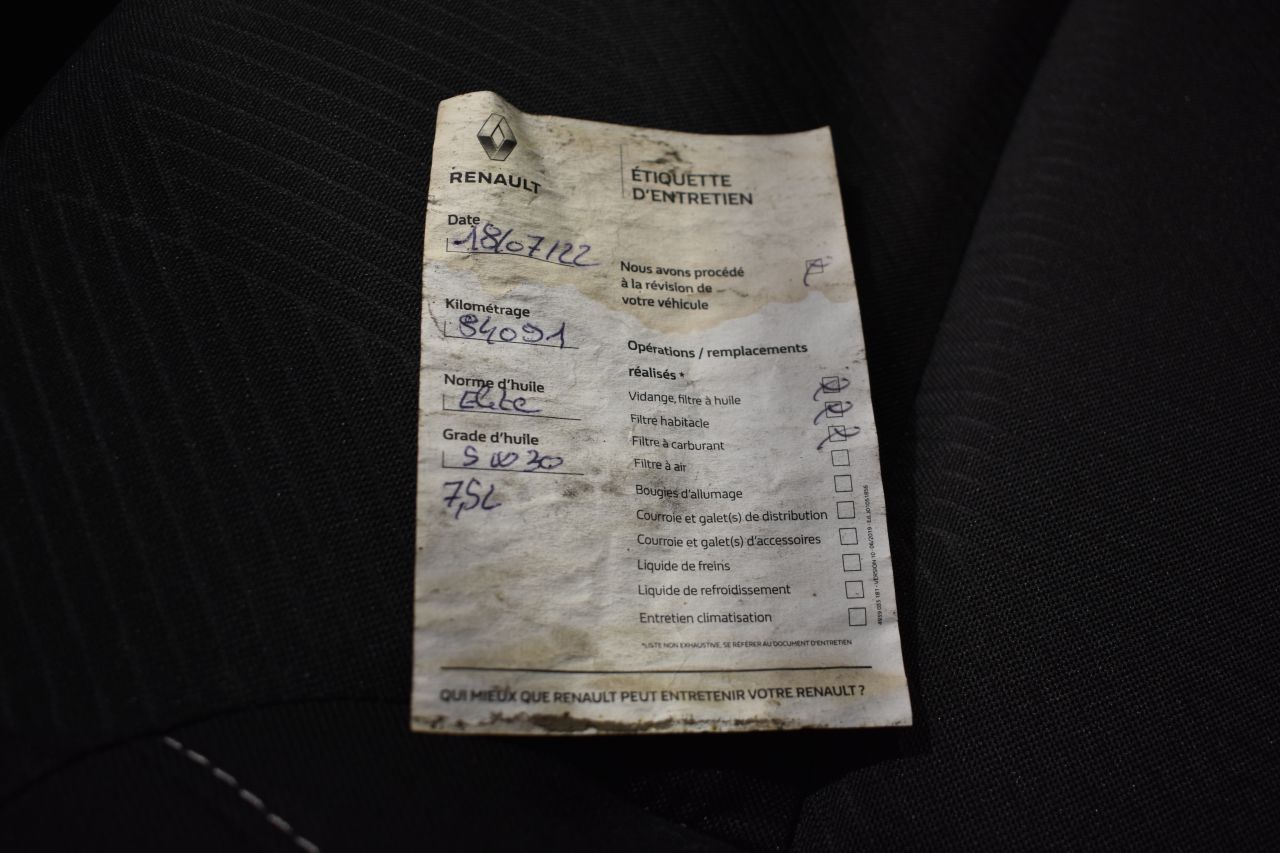 RENAULT
ÉTIQUETTE
D'ENTRETIEN
Date
18/07/22
Kilométrage
84091
Norme d'huile
Elite
Grade d'huile
5W30
7,5L
Nous avons procédé
à la révision de
votre véhicule
Opérations / remplacements
réalisés *
Vidange, filtre à huile
Filtre habitacle
Filtre à carburant
Filtre à air
Bougies d'allumage
Courroie et galet(s) de distribution
Courroie et galet(s) d'accessoires
Liquide de freins
Liquide de refroidissement
Entretien climatisation
*LISTE NON EXHAUSTIVE, SE RÉFÉRER AU DOCUMENT D'ENTRETIEN
QUI MIEUX QUE RENAULT PEUT ENTRETENIR VOTRE RENAULT ?